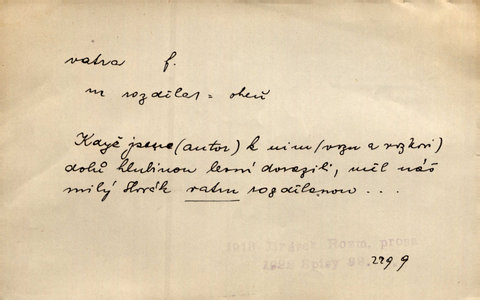 vatra f.
m rozdělat = oheň
Když jsme (autor) k nim (vozu a vozkovi)
dolů hlubinou lesní dorazili, měl náš
milý Slovák vatru rozdělanou . . .
1918 Jirásek Rozm. prosa
Spisy
229 9